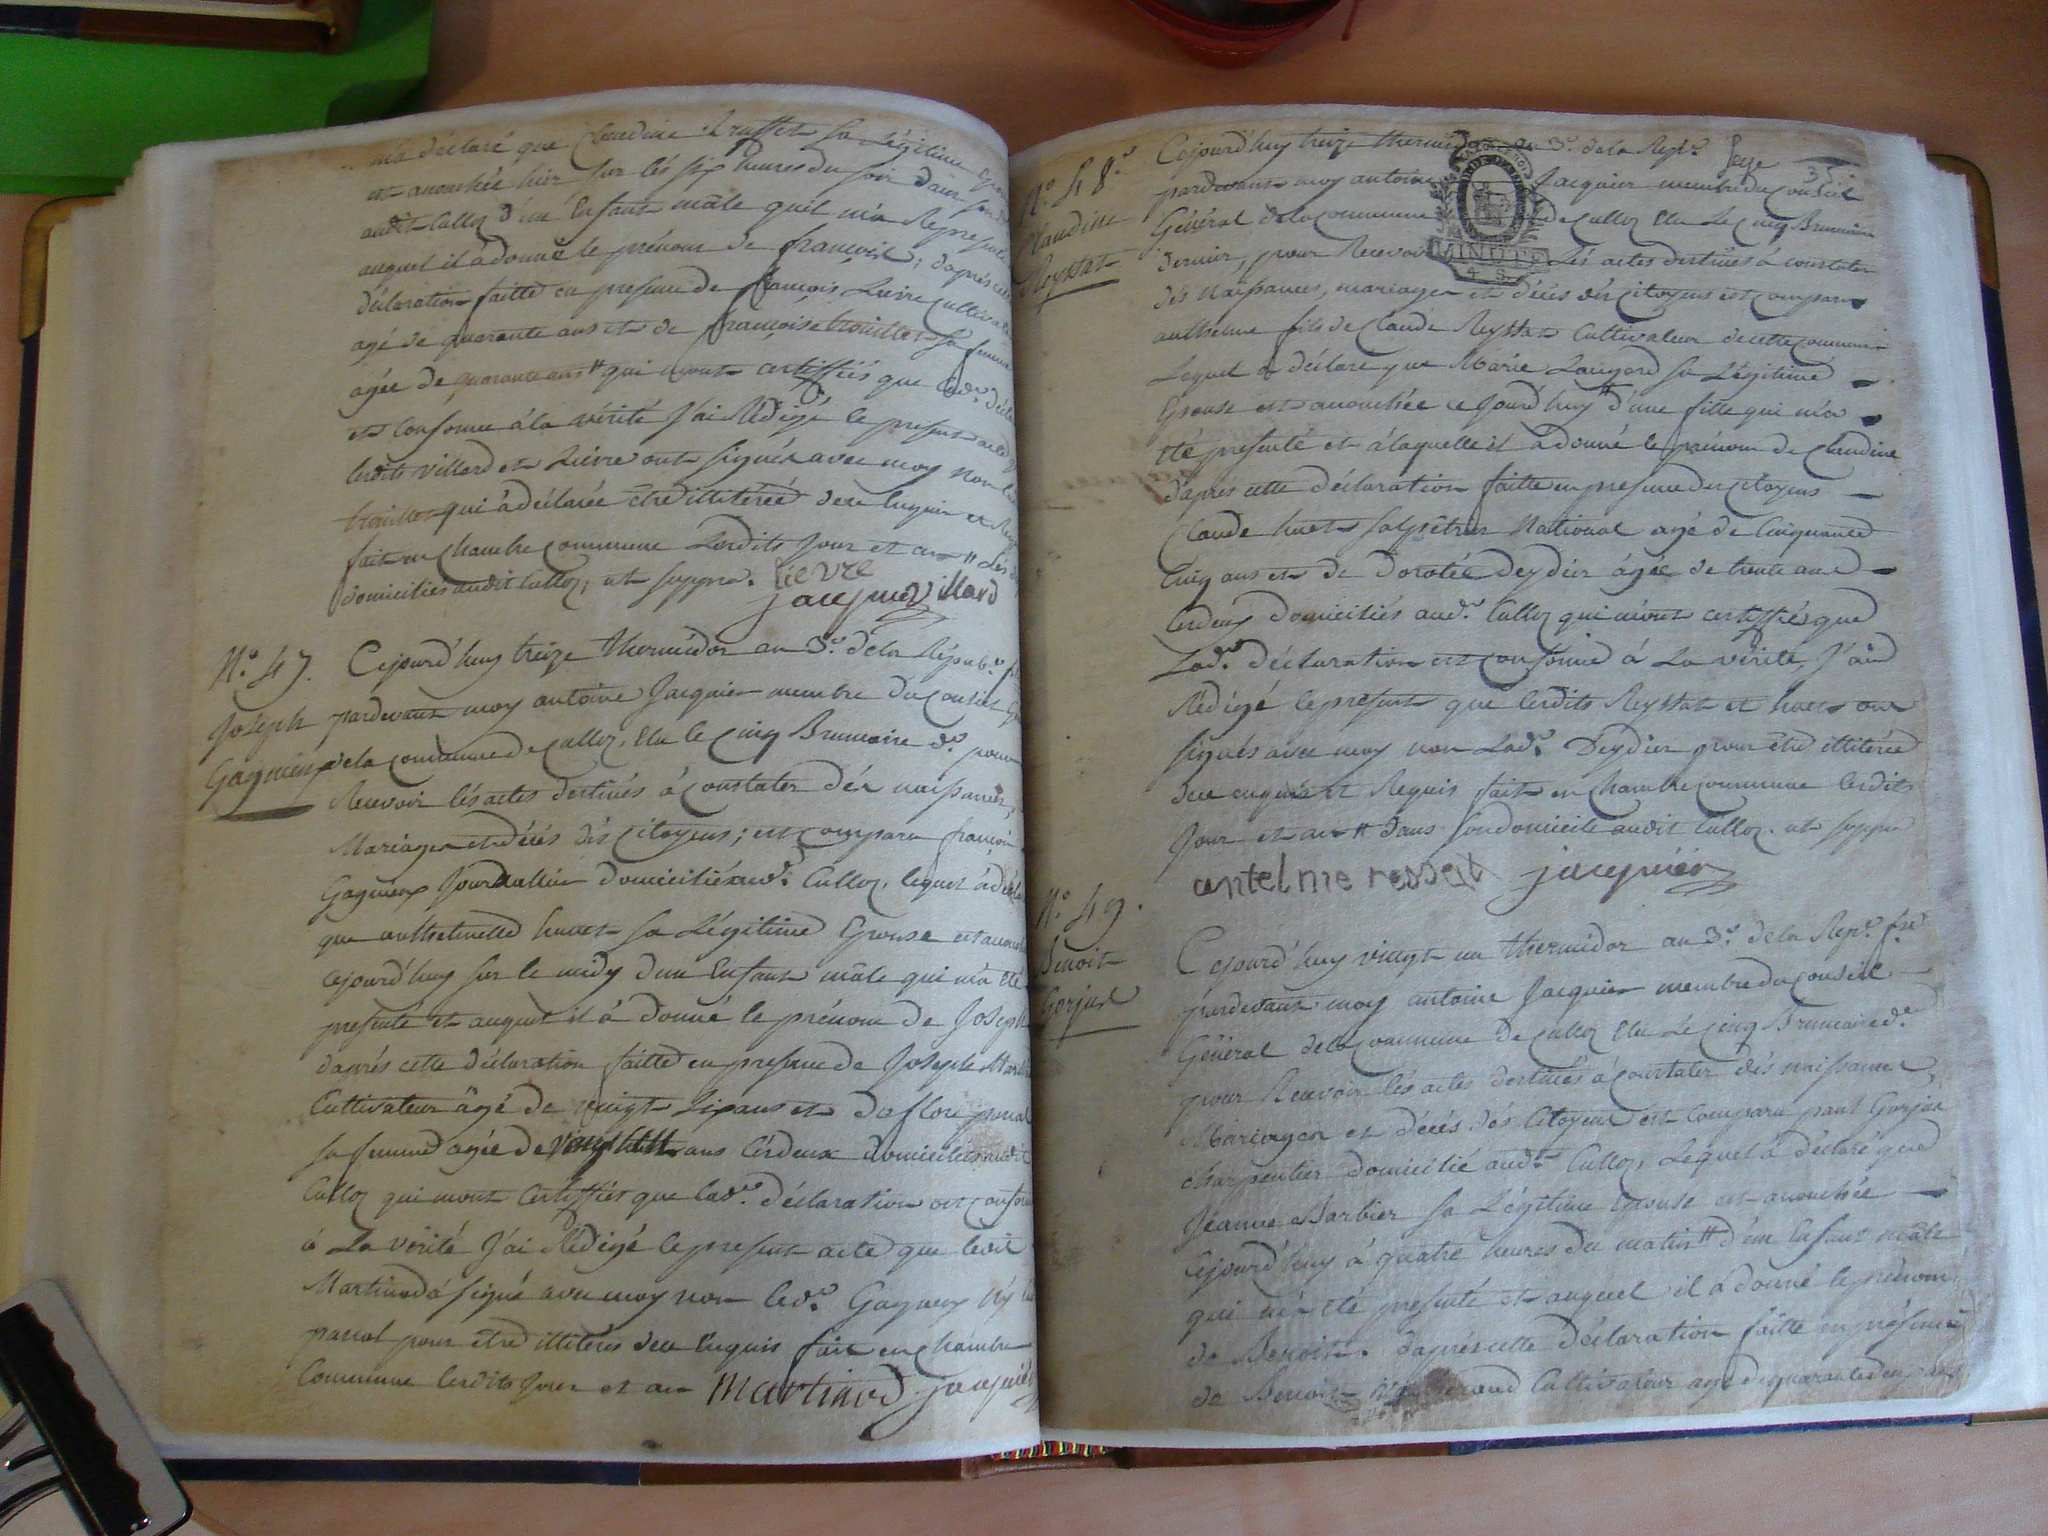 m'a déclaré que Claudine truffet sa Légitime
est accouchée hier sur lés six heures du soir dans son
audit Culloz d'un Enfant mâle quil m'a Represent
auquel il à donné le prénom de françois; d'aprés cette
déclaration faitte en presence de françois Lievre Cultivat
agé de quarante ans et de françoise trouillet sa femme
agée de quarante ans qui m'ont certiffiés que lad.e décla
est Conforme à la vérité J'ai Rédigé le present acte q
lesdits villard et Lièvre ont signés avec moy non lad
trouillet qui à déclarée être illitérée de ce enquise et Req
fait en chambre commune Lesdits Jour et an Les
domicilies audit Culloz, ut suppra. lievre
jacquier villard
N.o 47. Cejourd'huy treize thermidor an 3.e dela Répub.e f
Joseph pardevant moy antoine Jacquier membre du Conseil G
Gagnieux dela commune de Culloz, Elu le Cinq Brumaire d.r pour
Recevoir lés actes destinés à Constater dés naissances,
Mariages et décés dés Citoyens; est comparu françois
Gagnieux Journallier domicilié aud.t Culloz, lequel à décla
que anthelmette huet sa Légitime Epouse est accouch
cejourd'huy sur le midy d'un Enfant mâle qui m'a été
presenté et auquel il à donné le prénom de Joseph
d'aprés cette déclaration faitte en presence de Joseph Martinod
Cultivateur âgé de vingt six ans et de flory pascal
sa femme agée de vingt huit ans lesdeux domiciliés audit
Culloz qui m'ont Certiffiés que lad.e déclaration est conforme
à La vérité J'ai Rédigé le present acte que ledit
Martinod à signé avec moy non led.t Gagneux ny lad
pascal pour être illitérés de ce Enquis fait en chambre
Commune lesdits Jour et an Martinod jacquier
N.o 48.e Cejourd'huy treize thermidor an 3.e dela Rép.e frse 35
Claudine pardevant moy antoine Jacquier membre du Conseil
Reyssat Général dela Commune de Culloz Elu Le Cinq Brumaire
MINUTE
4 S
dernier, pour Recevoir Lés actes destinés à constater
dés Naissances, mariages et décés dés Citoyens est comparu
anthelme fils de Claude Reyssat Cultivateur de cette commune
Lequel à déclaré que Marie Laugard sa Légitime
Epouse est accouchée ce Jourd'huy d'une fille qui m'a
été presenté et à laquelle il à donné le prénom de Claudine
d'aprés cette déclaration faitte en presence des Citoyens
Claude huet salpêtrier National agé de Cinquante
Cinq ans et de Dorotée Deydier âgée de trente ans
lesdeux domiciliés aud.t Culloz qui m'ont certiffiés que
Lad.e déclaration est conforme à La vérité, J'ai
Rédigé le present que lesdits Reyssat et huet ont
signés avec moy non Lad.e Deydier pour être illitérée
de ce enquise et Requis fait en chambre commune lesdits
Jour et an dans son domicile audit Culloz. ut suppra
antelme resset jacquier
N.o 49. Cejourd'huy vingt un thermidor an 3.e dela Rep.e fse
Benoit pardevant moy antoine Jacquier membre du Conseil
Gorjus Général dela Commune de Culloz Elu Le Cinq Brumaire d.r
pour Recevoir lés actes destinés à constater dés naissances,
Mariages et décés dés Citoyens est Comparu paul Gorjus
charpentier domicilié aud.t Culloz, Lequel à déclaré que
Jéanne Barbier sa Légitime Epouse est accouchée
Cejourd'huy à quatre heures du matin d'un Enfant mâle
qui m'a été presenté et auquel il à donné le prénom
de Benoit. d'aprés cette déclaration faitte en présence
de Benoit Cultivateur agé de quarante deux ans